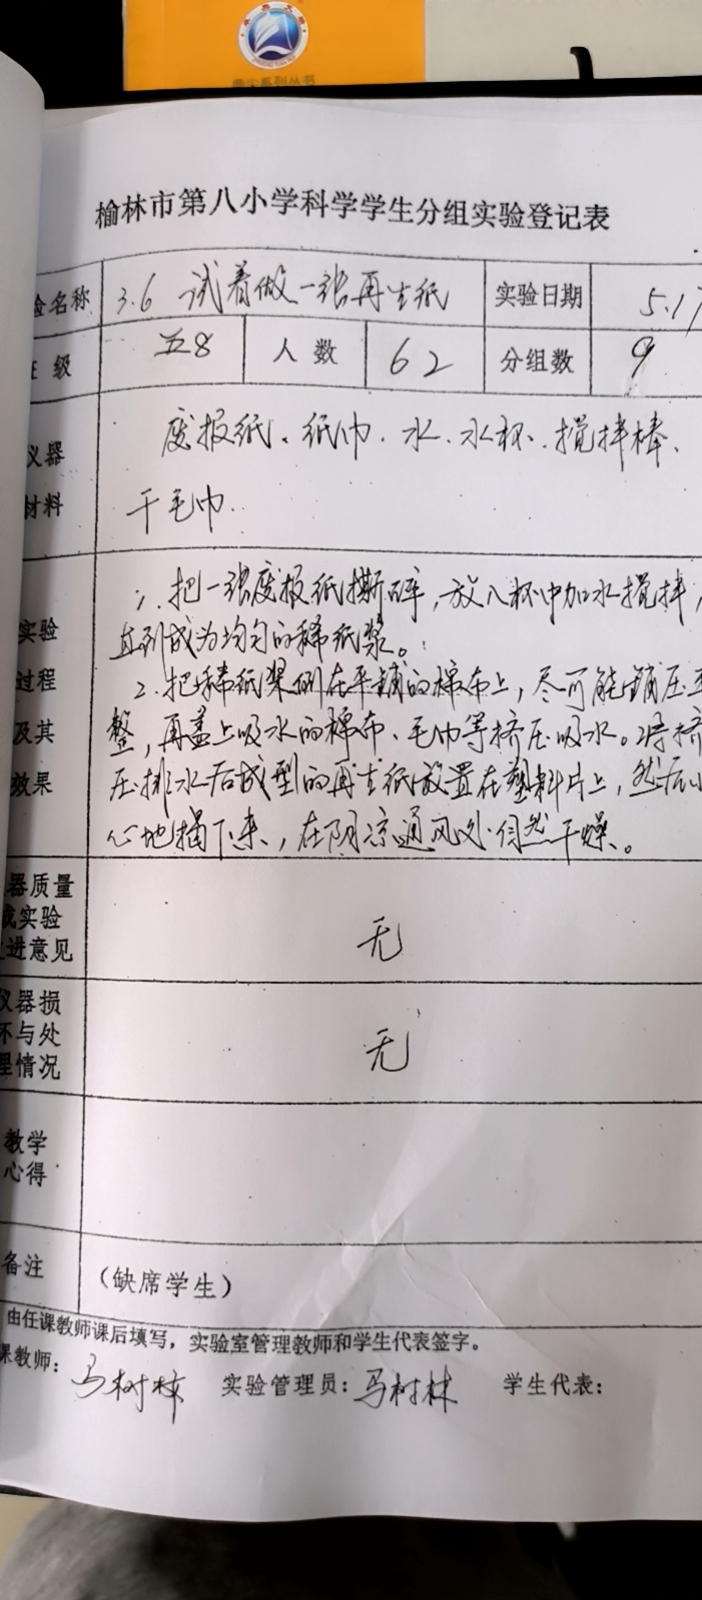 鼎尖系列丛书
榆林市第八小学科学学生分组实验登记表
验名称 3.6 试着做一张再生纸 实验日期 5.17
级 五8 人数 62 分组数 9
仪器 废报纸、纸巾、水、水杯、搅拌棒、
材料 干毛巾.
1. 把一张废报纸撕碎,放入杯中加水搅拌,
实验 直到成为均匀的稀纸浆。
过程 2. 把稀纸浆倒在平铺的棉布上,尽可能铺压平
及其 整,再盖上吸水的棉布、毛巾等挤压吸水。将挤
效果 压排水后成型的再生纸放置在塑料片上,然后小
心地揭下来,在阴凉通风处自然干燥。
器质量
或实验 无
进意见
仪器损
坏与处 无
理情况
教学
心得
备注 (缺席学生)
由任课教师课后填写,实验室管理教师和学生代表签字。
课教师: 马树林 实验管理员: 马树林 学生代表: